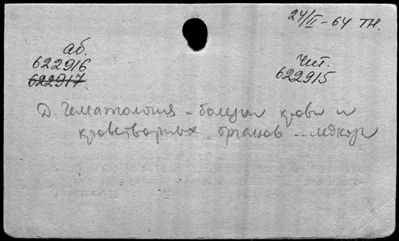 24/II-64 тн.
аб.
622916
622917
Чит.
622915
Д. Гематология - болезни крови и
кроветворных органов -